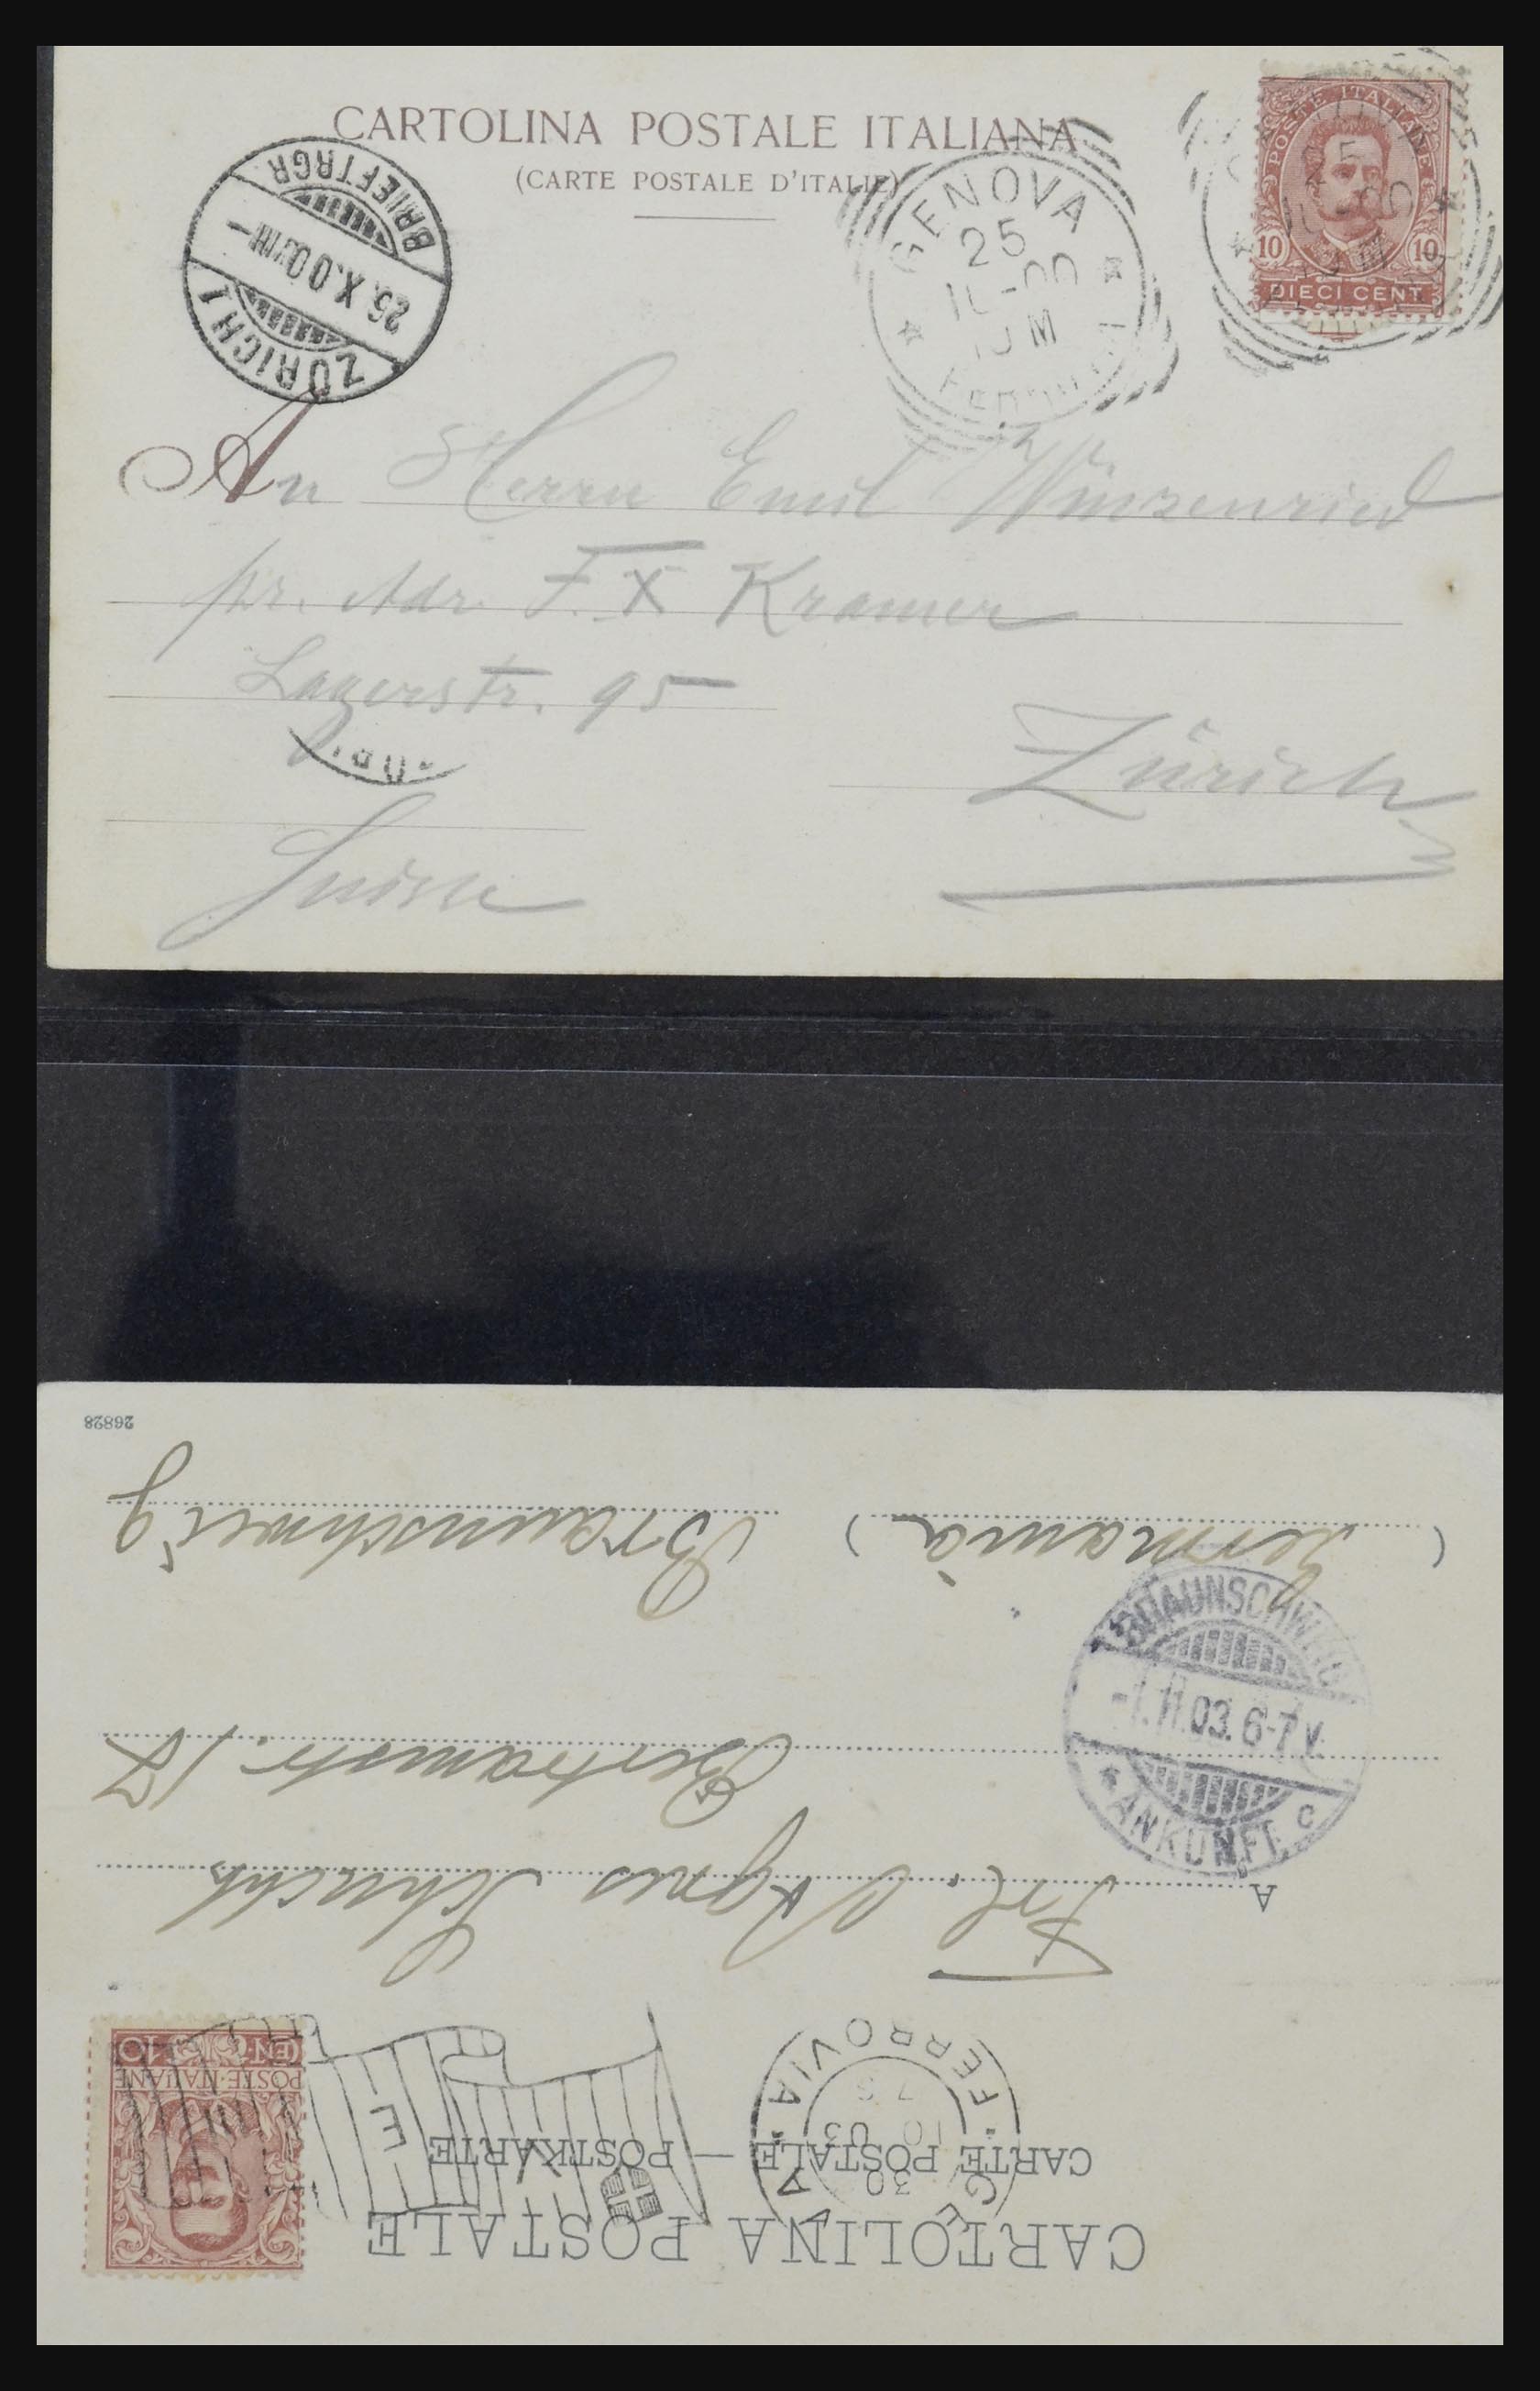 CARTOLINA POSTALE ITALIANA
(CARTE POSTALE D'ITALIE)
ZÜRICH 1
26.X.00
BRIEFTRGR
GENOVA
25
10-00
10 M
FERROVIA
POSTE ITALIANE
10 10
DIECI CENT.
An Herrn Emil Winzenried
pr. Adr. F. X Kramer
Lagerstr. 95
Zürich
Suisse
CARTOLINA POSTALE
CARTE POSTALE — POSTKARTE
30
10 03
7 S
FERROVIA
POSTE ITALIANE
CENT. 10
E
A
Frl. Agnes Schucht
Bertramstr. 17
Braunschweig
(Germania)
BRAUNSCHWEIG
-1.11.03. 6-7 V.
* ANKUNFT. c
26828